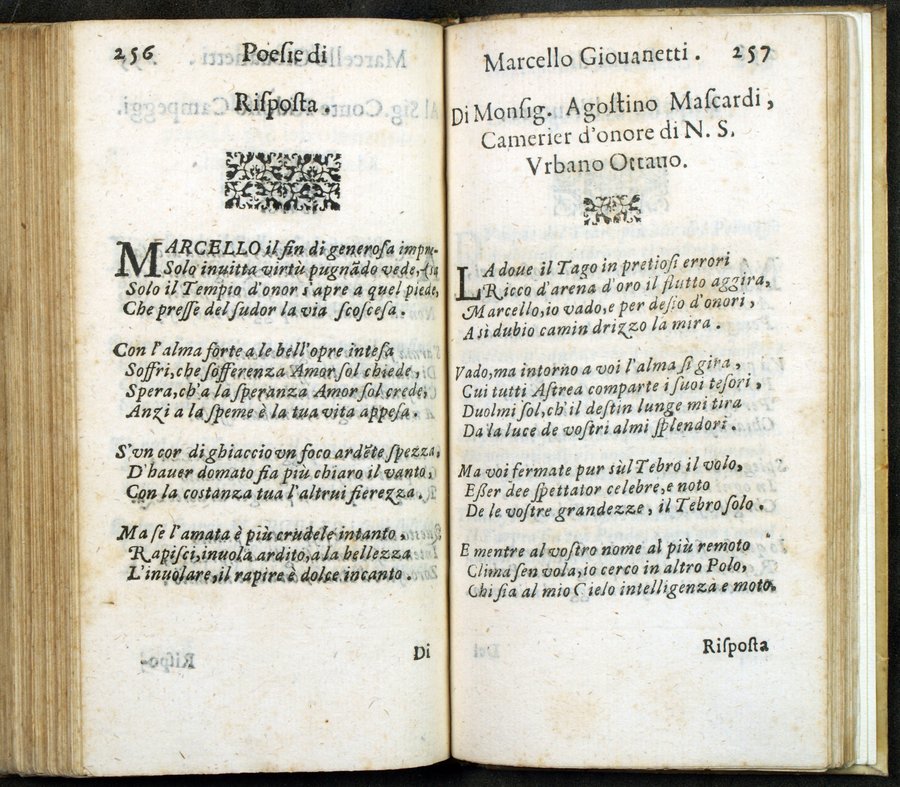 256 Poesie di
Risposta.
MARCELLO il fin di generosa impre-
Solo inuitta virtù pugnãdo vede, (sa
Solo il Tempio d'onor s'apre a quel piede,
Che presse del sudor la via scoscesa.
Con l'alma forte a le bell'opre intesa
Soffri, che sofferenza Amor sol chiede,
Spera, ch'a la speranza Amor sol crede,
Anzi a la speme è la tua vita appesa.
S'vn cor di ghiaccio vn foco ardẽte spezza,
D'hauer domato fia più chiaro il vanto,
Con la costanza tua l'altrui fierezza.
Ma se l'amata è più crudele intanto,
Rapisci, inuola ardito, a la bellezza
L'inuolare, il rapire è dolce incanto.
Di
Marcello Giouanetti. 257
Di Monsig. Agostino Mascardi,
Camerier d'onore di N. S.
Vrbano Ottauo.
LA doue il Tago in pretiosi errori
Ricco d'arena d'oro il flutto aggira,
Marcello, io vado, e per desio d'onori,
A sì dubio camin drizzo la mira.
Vado, ma intorno a voi l'alma si gira,
Cui tutti Astrea comparte i suoi tesori,
Duolmi sol, ch'il destin lunge mi tira
Da la luce de vostri almi splendori.
Ma voi fermate pur sùl Tebro il volo,
Esser dee spettator celebre, e noto
De le vostre grandezze, il Tebro solo.
E mentre al vostro nome al più remoto
Clima sen vola, io cerco in altro Polo,
Chi sia al mio Cielo intelligenza e moto.
Risposta